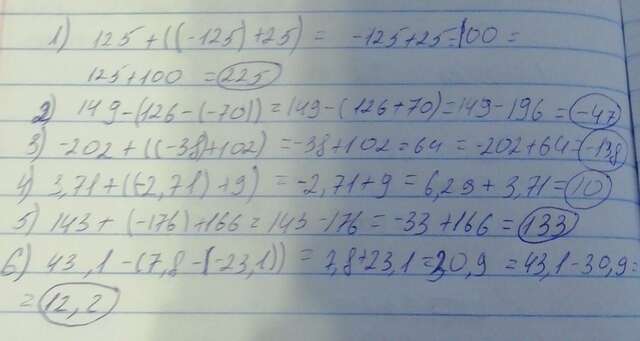 1) 125 + ((-125) + 25) = -125+25=100 =
125+100 = 225
2) 149-(126-(-70)) = 149-(126+70)=149-196 = -47
3) -202 + ((-38)+102) = -38+102=64 = -202+64=-138
4) 3,71+((-2,71)+9) = -2,71+9 = 6,29+3,71=10
5) 143+(-176)+166=143-176=-33+166=133
6) 43,1-(7,8-(-23,1)) = 7,8+23,1=30,9 = 43,1-30,9=
= 12,2